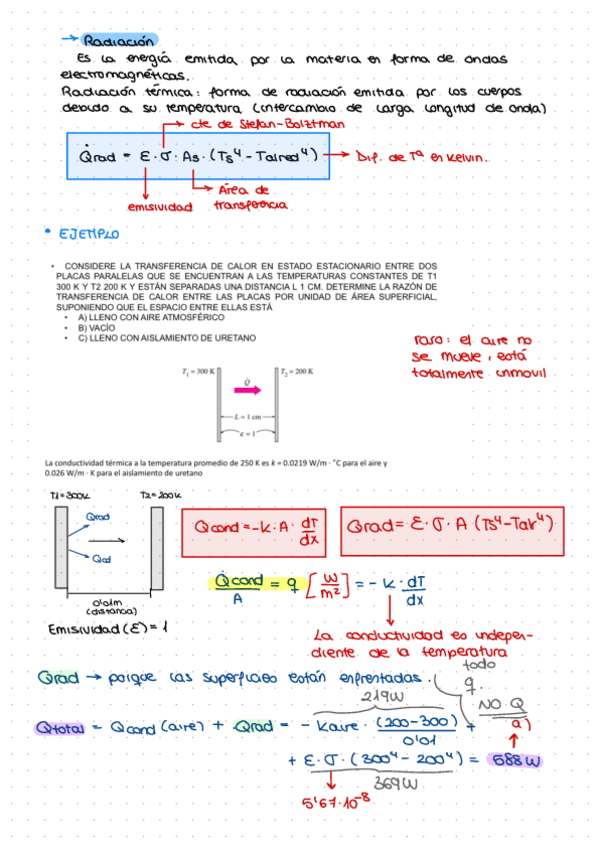 → Radiación
Es la energía emitida por la materia en forma de ondas
electromagnéticas.
Radiación térmica: forma de radiación emitida por los cuerpos
debido a su temperatura (intercambio de carga longitud de onda)
→ cte de Stefan-Bolztman
Q̇rad = ε · σ · As · (Ts⁴ - Talred⁴) → Dif. de Tª en Kelvin.
→ Área de
emisividad transferencia
* EJEMPLO
• CONSIDERE LA TRANSFERENCIA DE CALOR EN ESTADO ESTACIONARIO ENTRE DOS
PLACAS PARALELAS QUE SE ENCUENTRAN A LAS TEMPERATURAS CONSTANTES DE T1
300 K Y T2 200 K Y ESTÁN SEPARADAS UNA DISTANCIA L 1 CM. DETERMINE LA RAZÓN DE
TRANSFERENCIA DE CALOR ENTRE LAS PLACAS POR UNIDAD DE ÁREA SUPERFICIAL,
SUPONIENDO QUE EL ESPACIO ENTRE ELLAS ESTÁ
• A) LLENO CON AIRE ATMOSFÉRICO
• B) VACÍO
• C) LLENO CON AISLAMIENTO DE URETANO
raro: el aire no
se mueve, está
totalmente unmovil
T₁ = 300 K T₂ = 200 K
Q̇
L = 1 cm
ε = 1
La conductividad térmica a la temperatura promedio de 250 K es k = 0.0219 W/m · °C para el aire y
0.026 W/m · K para el aislamiento de uretano
T1=300k T2=200k
Qrad
Qcd
0'01m
(distancia)
Emisividad (ε) = 1
Qcond = -k · A · dT/dx
Qrad = ε · σ · A (Ts⁴ - Talr⁴)
Q̇cond/A = q [W/m²] = - k · dT/dx
La conductividad es indepen-
diente de la temperatura
Qrad → porque las superficies están enfrentadas.
todo
q.
NO Q
219W
Qtotal = Qcond (aire) + Qrad = - Kaire · (200-300)/0'01 + a)
+ ε · σ · (300⁴ - 200⁴) = 588 W
369W
5'67·10⁻⁸